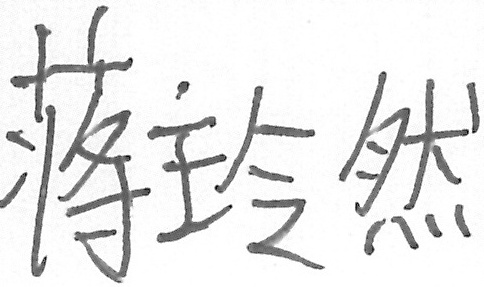 蒋玲然